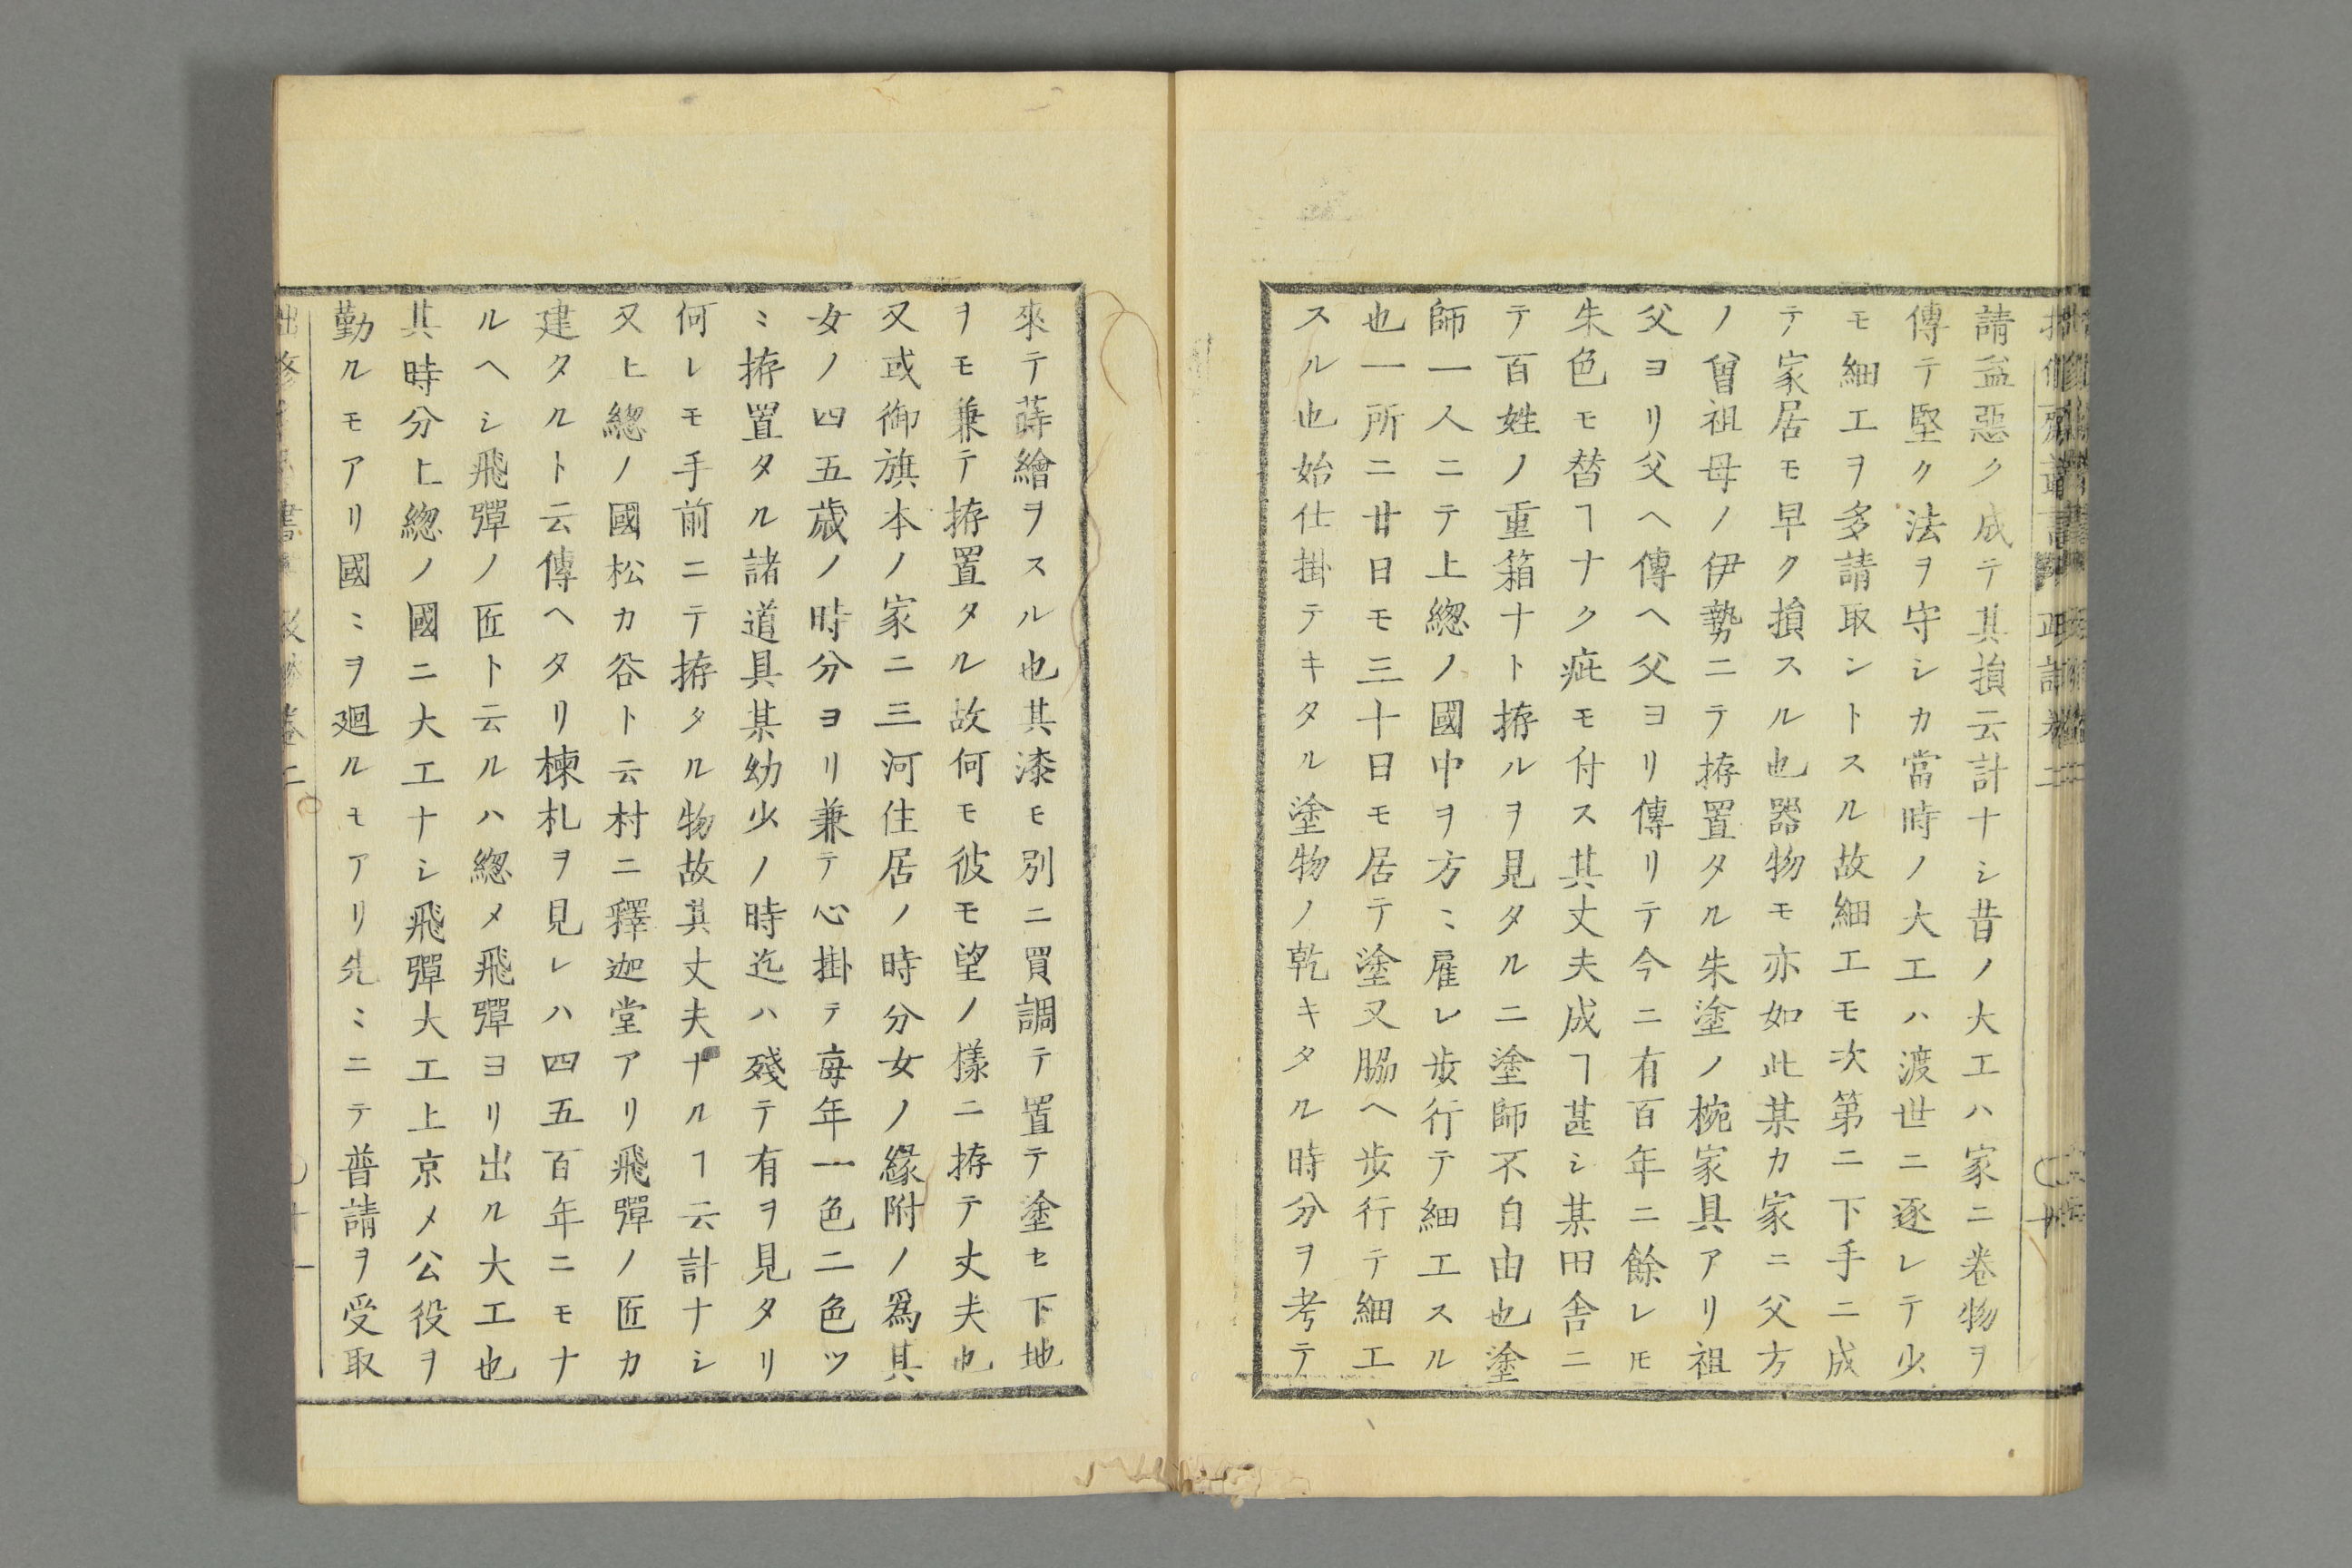 請益惡ク成テ其損云計ナシ昔ノ大工ハ家ニ卷物ヲ
傳テ堅ク法ヲ守シカ當時ノ大工ハ渡世ニ逐レテ少
モ細工ヲ多請取ントスル故細工モ次第ニ下手ニ成
テ家居モ早ク損スル也器物モ亦如此某カ家ニ父方
ノ曾祖母ノ伊勢ニテ拵置タル朱塗ノ椀家具アリ祖
父ヨリ父ヘ傳ヘ父ヨリ傳リテ今ニ有百年ニ餘レ𪜈
朱色モ替ヿナク疵モ付ス其丈夫成ヿ甚シ某田舍ニ
テ百姓ノ重箱ナト拵ルヲ見タルニ塗師不自由也塗
師一人ニテ上總ノ國中ヲ方ミ雇レ歩行テ細工スル
也一所ニ廿日モ三十日モ居テ塗又脇ヘ歩行テ細工
スル也始仕掛テキタル塗物ノ乾キタル時分ヲ考テ
來テ蒔繪ヲスル也其漆モ別ニ買調テ置テ塗セ下地
ヲモ兼テ拵置タル故何モ彼モ望ノ樣ニ拵テ丈夫也
又或御旗本ノ家ニ三河住居ノ時分女ノ緣附ノ爲其
女ノ四五歲ノ時分ヨリ兼テ心掛テ每年一色二色ツ
ミ拵置タル諸道具某幼少ノ時迄ハ殘テ有ヲ見タリ
何レモ手前ニテ拵タル物故其丈夫ナルヿ云計ナシ
又上總ノ國松カ谷ト云村ニ釋迦堂アリ飛彈ノ匠カ
建タルト云傳ヘタリ棟札ヲ見レハ四五百年ニモナ
ルヘシ飛彈ノ匠ト云ルハ總メ飛彈ヨリ出ル大工也
其時分上總ノ國ニ大工ナシ飛彈大工上京メ公役ヲ
勤ルモアリ國ミヲ廻ルモアリ先ミニテ普請ヲ受取